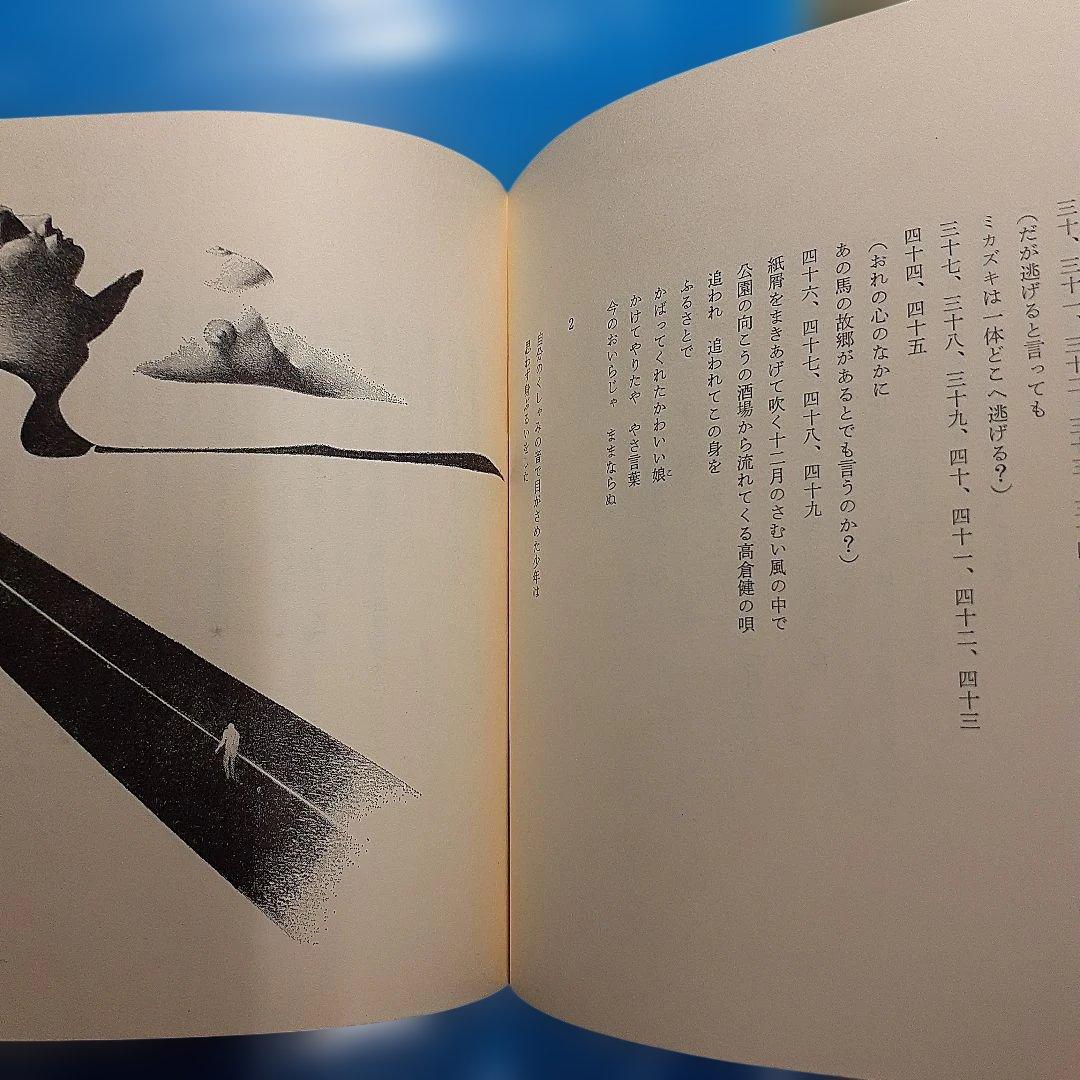 三十、三十一、三十二、三十三、三十四
（だが逃げると言っても
ミカズキは一体どこへ逃げる？）
三十七、三十八、三十九、四十、四十一、四十二、四十三
四十四、四十五
（おれの心のなかに
あの馬の故郷があるとでも言うのか？）
四十六、四十七、四十八、四十九
紙屑をまきあげて吹く十二月のさむい風の中で
公園の向こうの酒場から流れてくる高倉健の唄
追われ　追われてこの身を
ふるさとで
かばってくれたかわいい娘
かけてやりたや　やさ言葉
今のおいらじゃ　ままならぬ
2
自分のくしゃみの音で目がさめた少年は
思わず身ぶるいをした